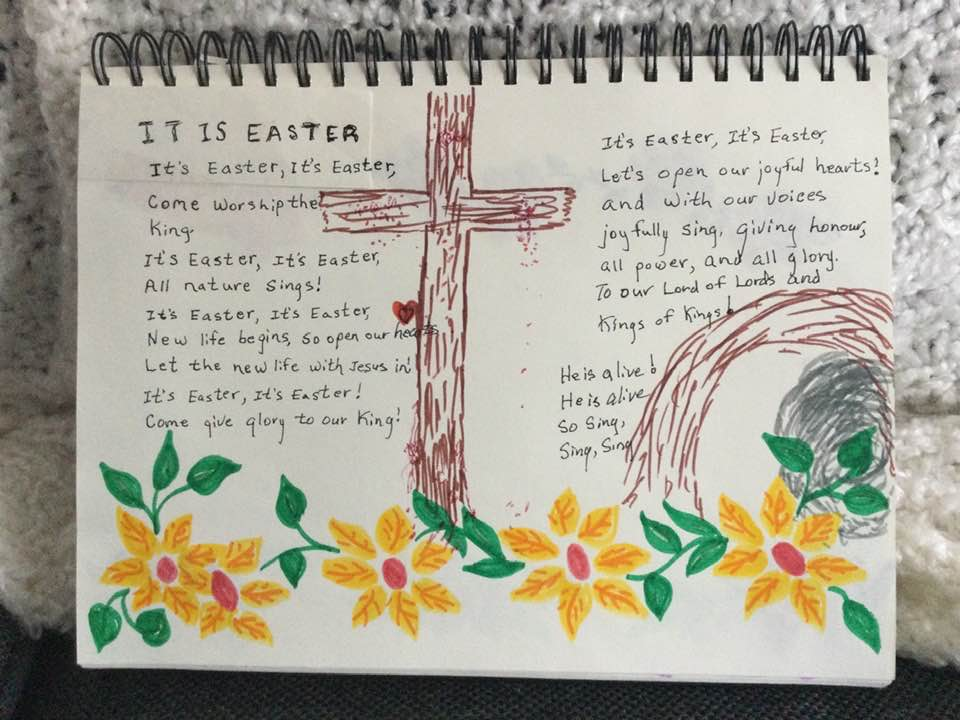 IT IS EASTER
It's Easter, It's Easter,
Come worship the
King.
It's Easter, It's Easter,
All nature sings!
It's Easter, It's Easter,
New life begins, so open our hearts
Let the new life with Jesus in!
It's Easter, It's Easter!
Come give glory to our King!
It's Easter, It's Easter,
Let's open our joyful hearts!
and with our voices
joyfully sing, giving honour,
all power, and all glory.
To our Lord of Lords and
Kings of Kings!
He is alive!
He is alive
So Sing,
Sing, Sing